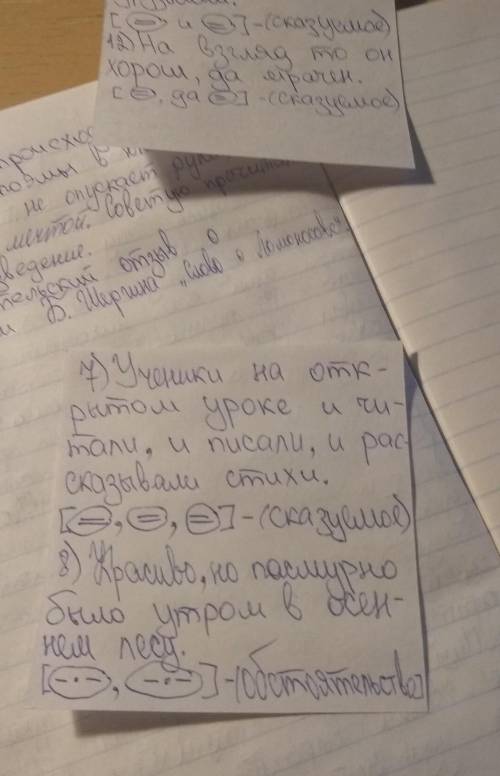 [⊜ и ⊜]-(сказуемое)
12) На взгляд то он
хорош, да мрачен.
[⊜, да ⊜]-(сказуемое)
поэмы в
не опускает руки
мечтой. Советую прочитать
ведение.
тельский отзыв о
и Б. Шергина "Слово о Ломоносове".
7) Ученики на отк-
рытом уроке и чи-
тали, и писали, и рас-
сказывали стихи.
[⊜, ⊜, ⊜]-(сказуемое)
8) Красиво, но пасмурно
было утром в осен-
нем лесу.
[-·-, -·-]-(обстоятельство)